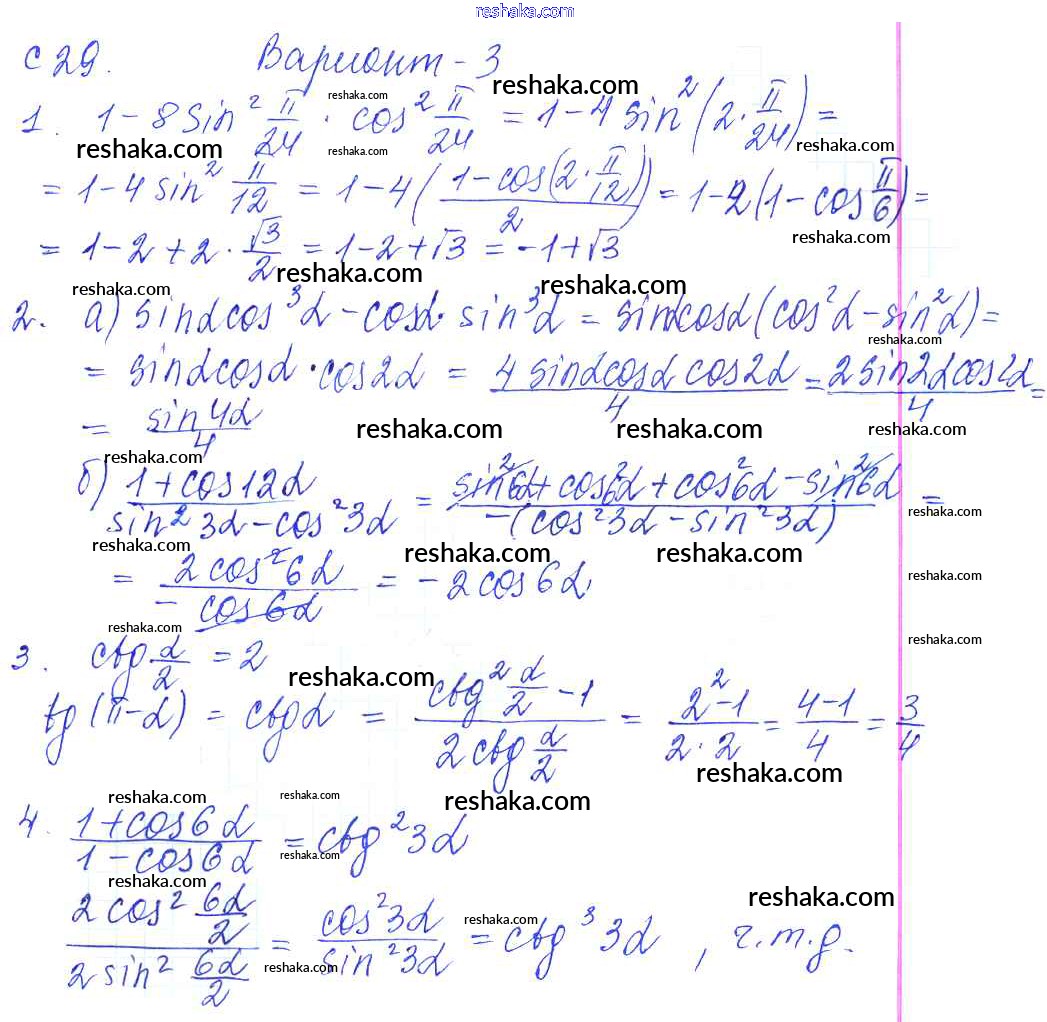 reshaka.com
С 29. Вариант - 3
1. 1 - 8 sin² π/24 · cos² π/24 = 1 - 4 sin² (2 · π/24) =
= 1 - 4 sin² π/12 = 1 - 4 ( (1 - cos(2 · π/12))/2 ) = 1 - 2(1 - cos π/6) =
= 1 - 2 + 2 · √3/2 = 1 - 2 + √3 = -1 + √3
2. а) sinα cos³α - cosα · sin³α = sinα cosα (cos²α - sin²α) =
= sinα cosα · cos2α = (4 sinα cosα cos2α)/4 = (2 sin2α cos2α)/4 =
= sin4α/4
б) (1 + cos12α)/(sin² 3α - cos² 3α) = (sin²6α + cos²6α + cos²6α - sin²6α)/(-(cos²3α - sin²3α)) =
= (2 cos²6α)/(- cos6α) = - 2 cos6α
3. ctg α/2 = 2
tg (π - α) = ctgα = (ctg² α/2 - 1)/(2 ctg α/2) = (2² - 1)/(2 · 2) = (4 - 1)/4 = 3/4
4. (1 + cos6α)/(1 - cos6α) = ctg² 3α
(2 cos² 6α/2)/(2 sin² 6α/2) = (cos²3α)/(sin²3α) = ctg³ 3α, ч.т.д.